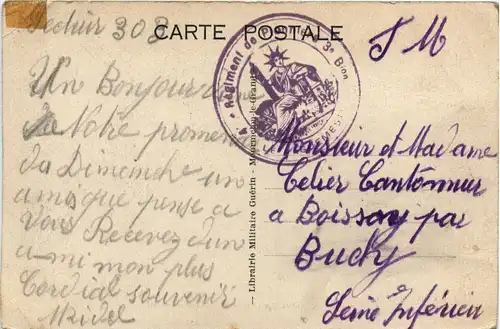 Secteur 308
CARTE POSTALE
F M
Régiment de
3e Bion
Un Bonjour
de Notre promenade
du Dimanche un
ami que pense a
Vous Recevez d'un
ami mon plus
Cordial souvenir
— Librairie Militaire Guérin - Mourmelon-le-Grand —
Monsieur et Madame
Celier Cantonnier
a Boissay par
Buchy
Seine Inférieur